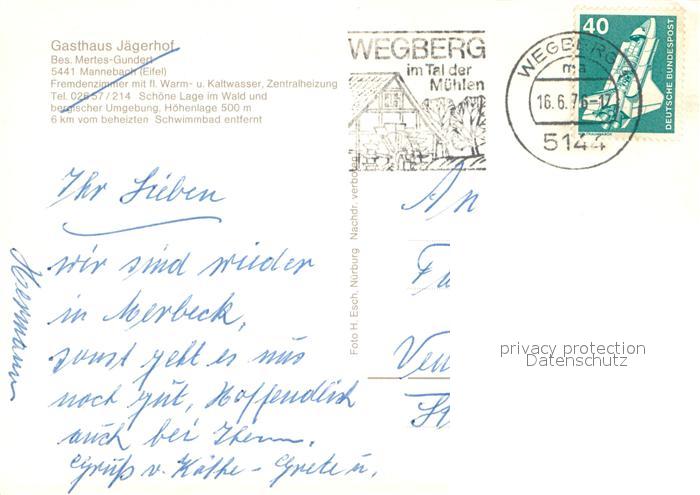 Gasthaus Jägerhof
Bes. Mertes-Gundert
5441 Mannebach (Eifel)
Fremdenzimmer mit fl. Warm- u. Kaltwasser, Zentralheizung
Tel. 02657/214 Schöne Lage im Wald und
bergischer Umgebung. Höhenlage 500 m
6 km vom beheizten Schwimmbad entfernt
WEGBERG
im Tal der
Mühlen
WEGBERG
ma
16.6.76-17
5144
40
DEUTSCHE BUNDESPOST
Foto H. Esch, Nürburg Nachdr. verboten
Ihr Lieben
wir sind wieder
in Merbeck,
sonst geht es uns
noch gut, Hoffendlich
auch bei Ihnen.
Grüß v. Käthe - Grete u.
Hermann
An
privacy protection
Datenschutz